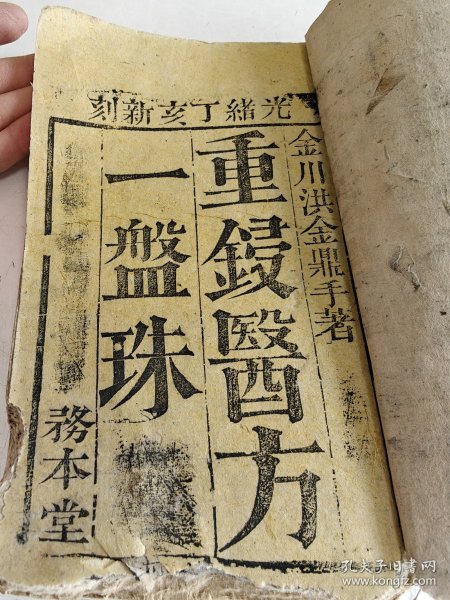 光緒丁亥新刻
金川洪金鼎手著
重鋟醫方
一盤珠
務本堂
孔夫子旧书网
www.kongfz.com